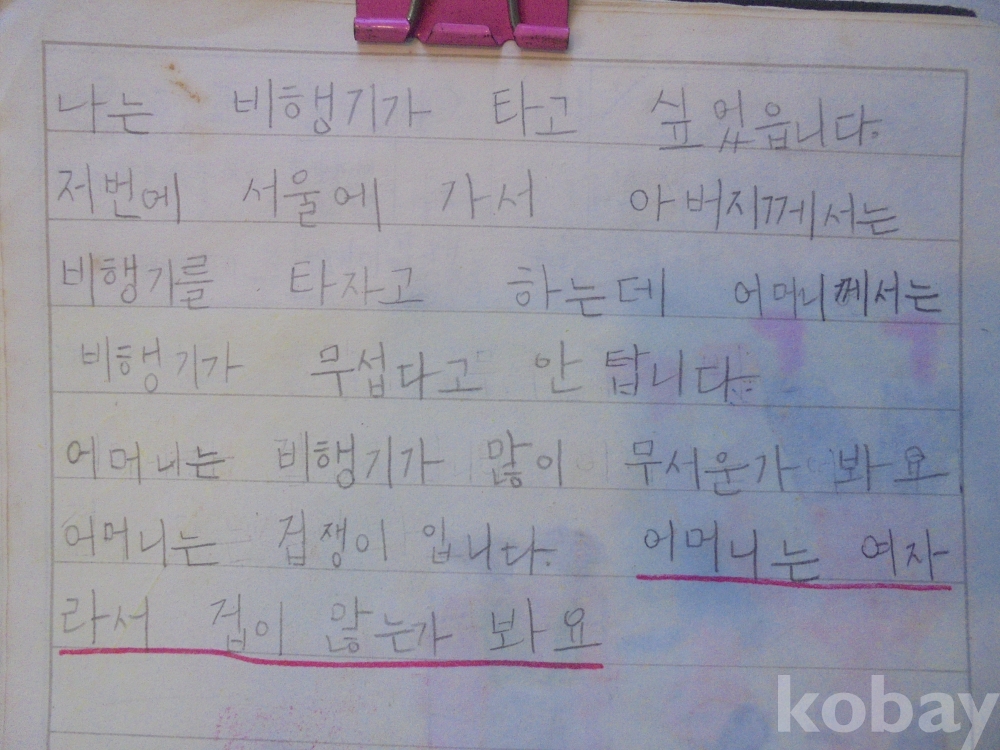 나는 비행기가 타고 싶었읍니다.
저번에 서울에 가서 아버지께서는
비행기를 타자고 하는데 어머니께서는
비행기가 무섭다고 안 탑니다.
어머니는 비행기가 많이 무서운가 봐요
어머니는 겁쟁이 입니다. 어머니는 여자
라서 겁이 많는가 봐요
kobay